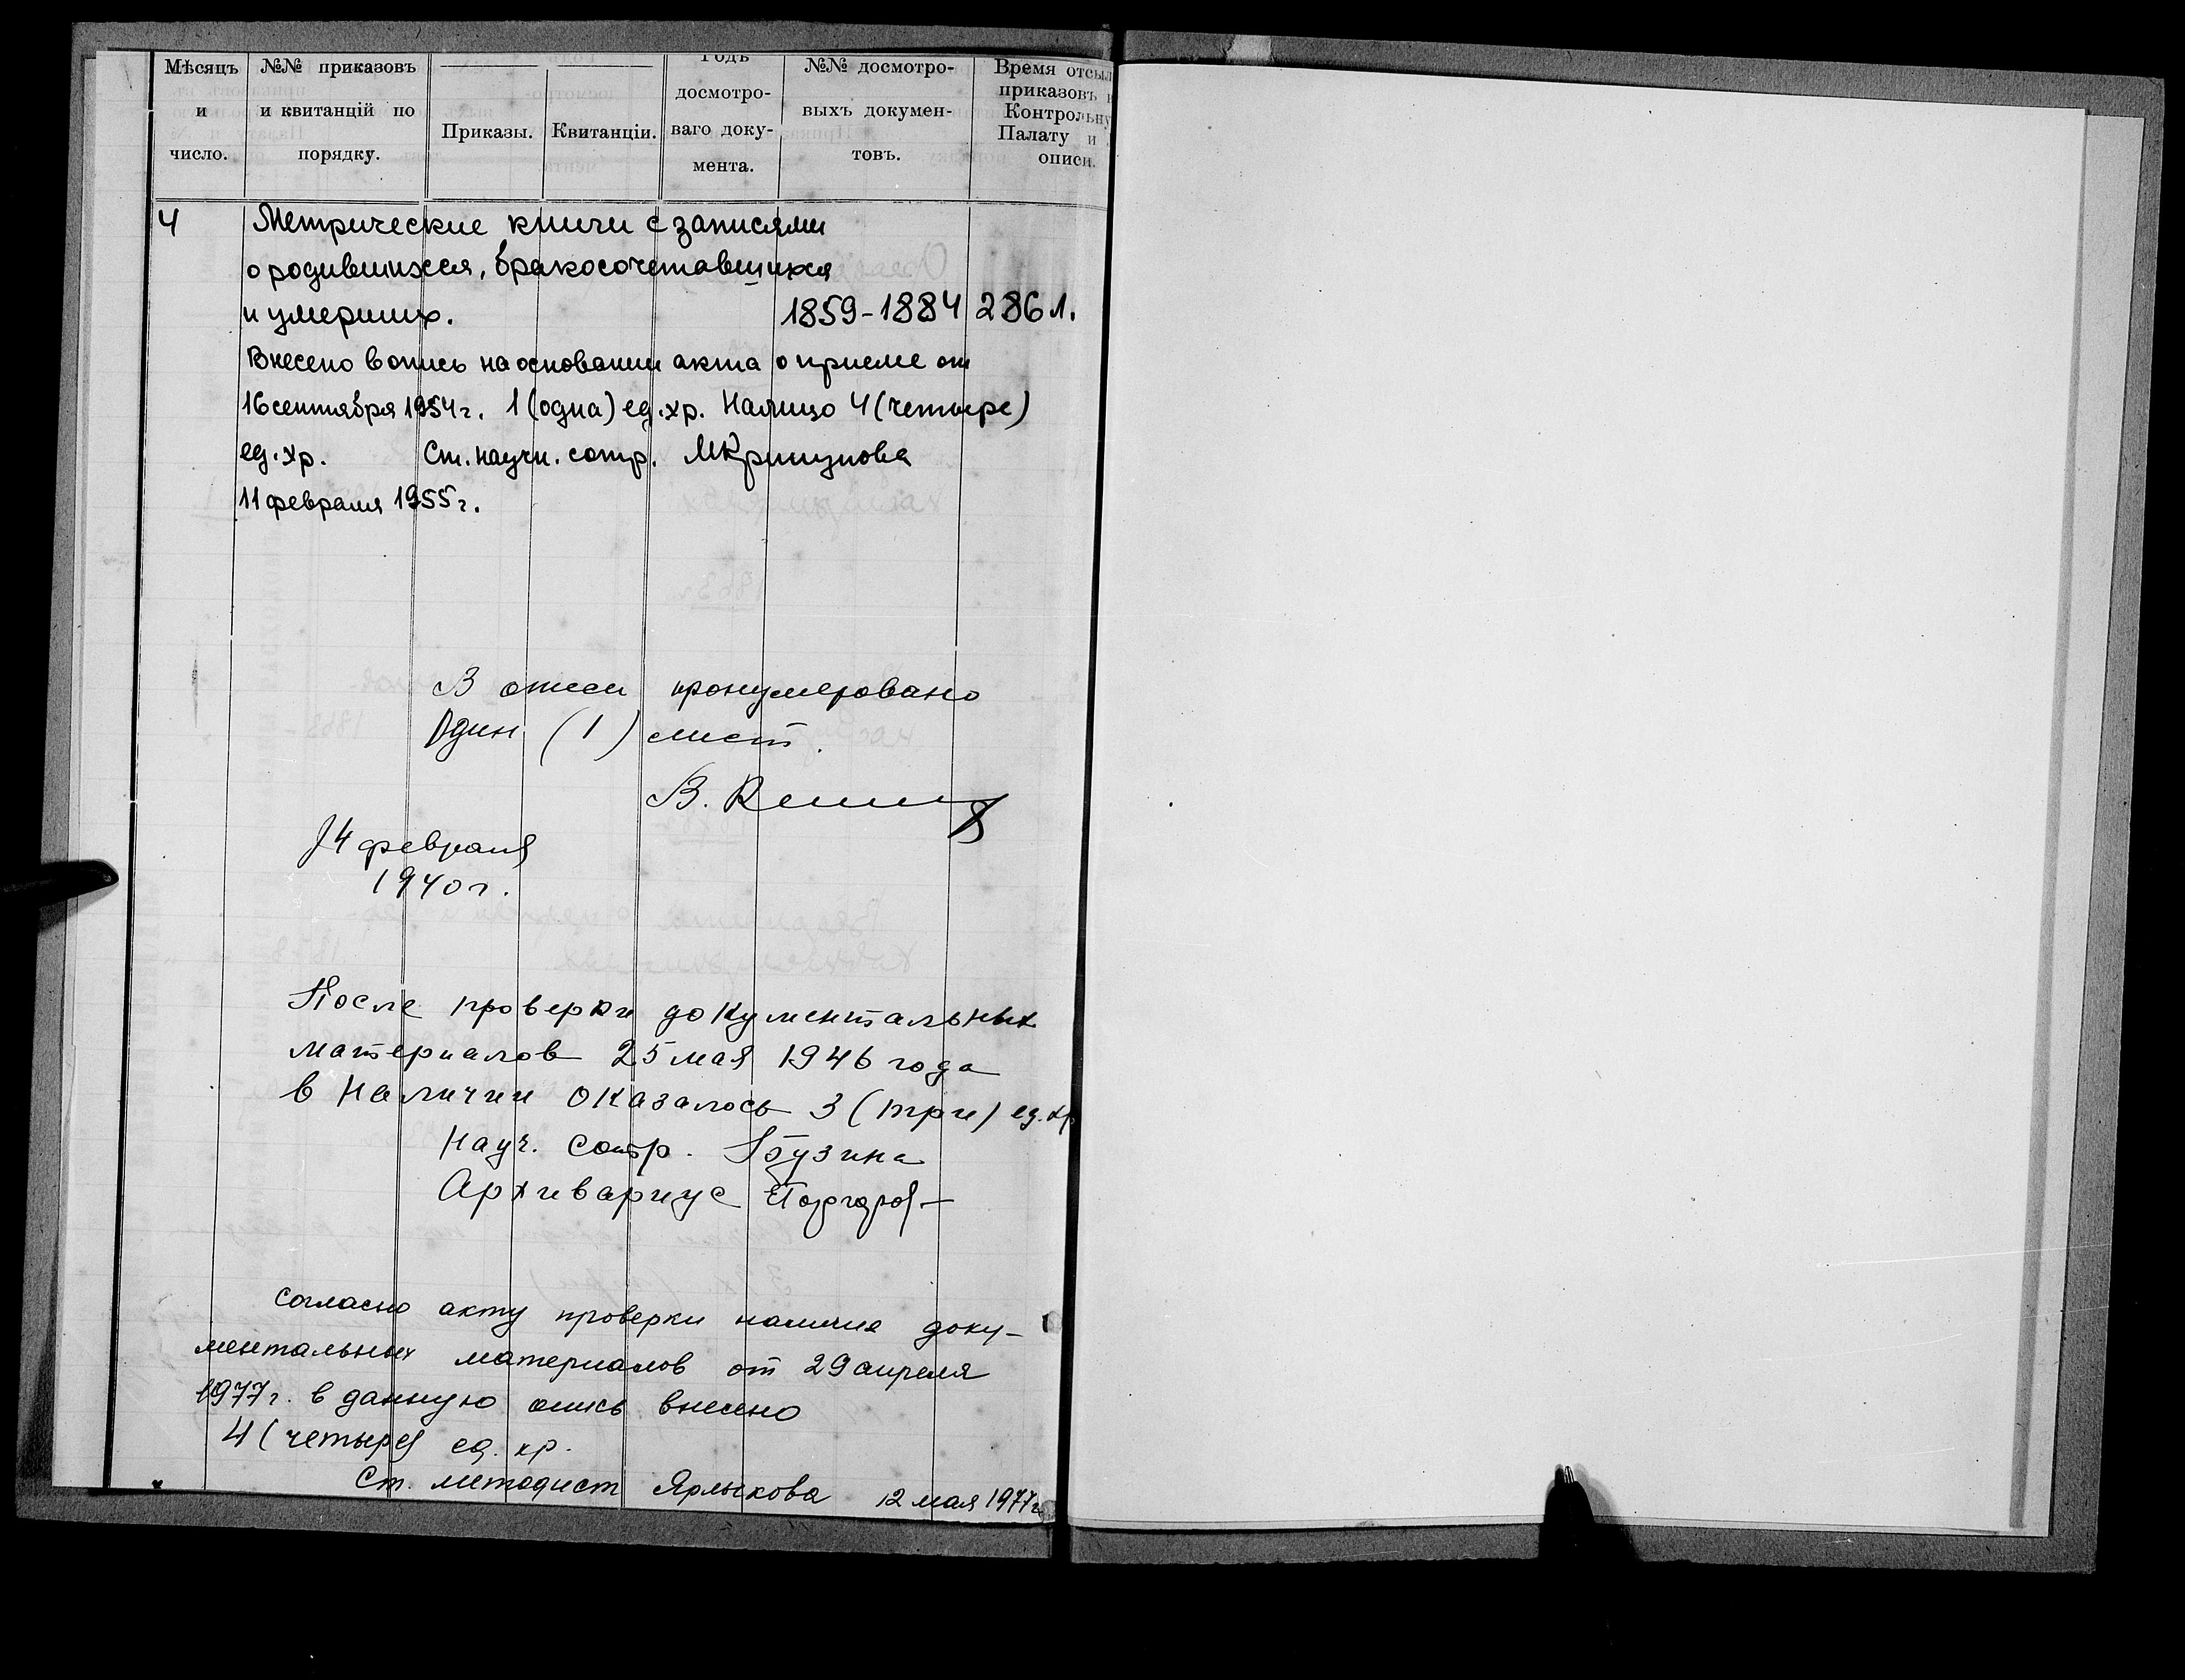 Мѣсяцъ и число.
№№ приказовъ и квитанцій по порядку.
Приказы.
Квитанціи.
Годъ досмотро-
ваго доку-
мента.
№№ досмотро-
выхъ докумен-
товъ.
Время отсыл
приказовъ
Контрольну
Палату и
описи.
4 Метрические книги с записями
о родившихся, бракосочетавшихся
и умерших. 1859-1884 286 л.
Внесено в опись на основании акта о приеме от
16 сентября 1954 г. 1 (одна) ед. хр. Налицо 4 (четыре)
ед. хр. Ст. научн. сотр.
11 февраля 1955 г.
В описи пронумеровано
Один (1) лист.
В.
14 февраля
1940 г.
После проверки документальных
материалов 25 мая 1946 года
в наличии оказалось 3 (три) ед. хр
Науч. сотр. Бузина
Архивариус
Согласно акту проверки наличия доку-
ментальных материалов от 29 апреля
1977 г. в данную опись внесено
4 (четыре) ед. хр.
Ст. методист Ярлыкова 12 мая 1977 г.